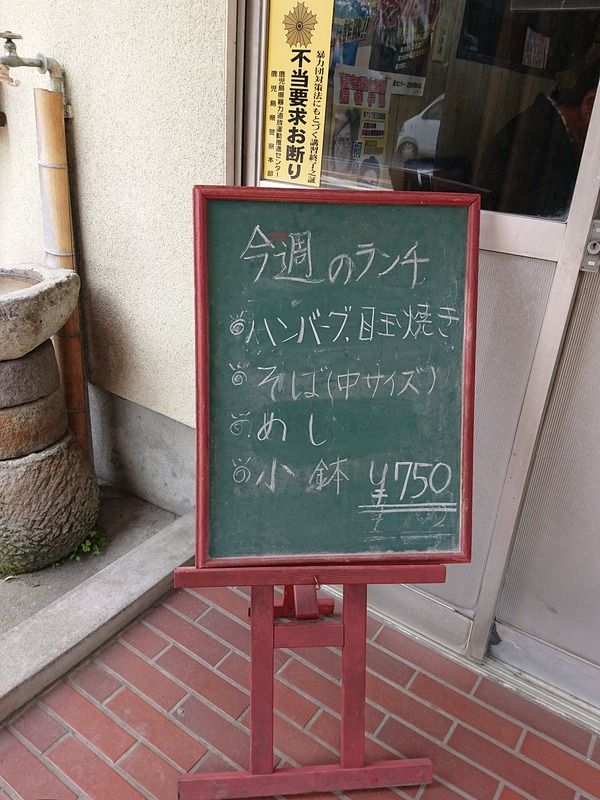 暴力団対策法にもとづく講習修了之証
不当要求お断り
鹿児島県暴力追放運動推進センター
鹿児島県警察本部
今週のランチ
ハンバーグ、目玉焼き
そば(中サイズ)
めし
小鉢 ¥750